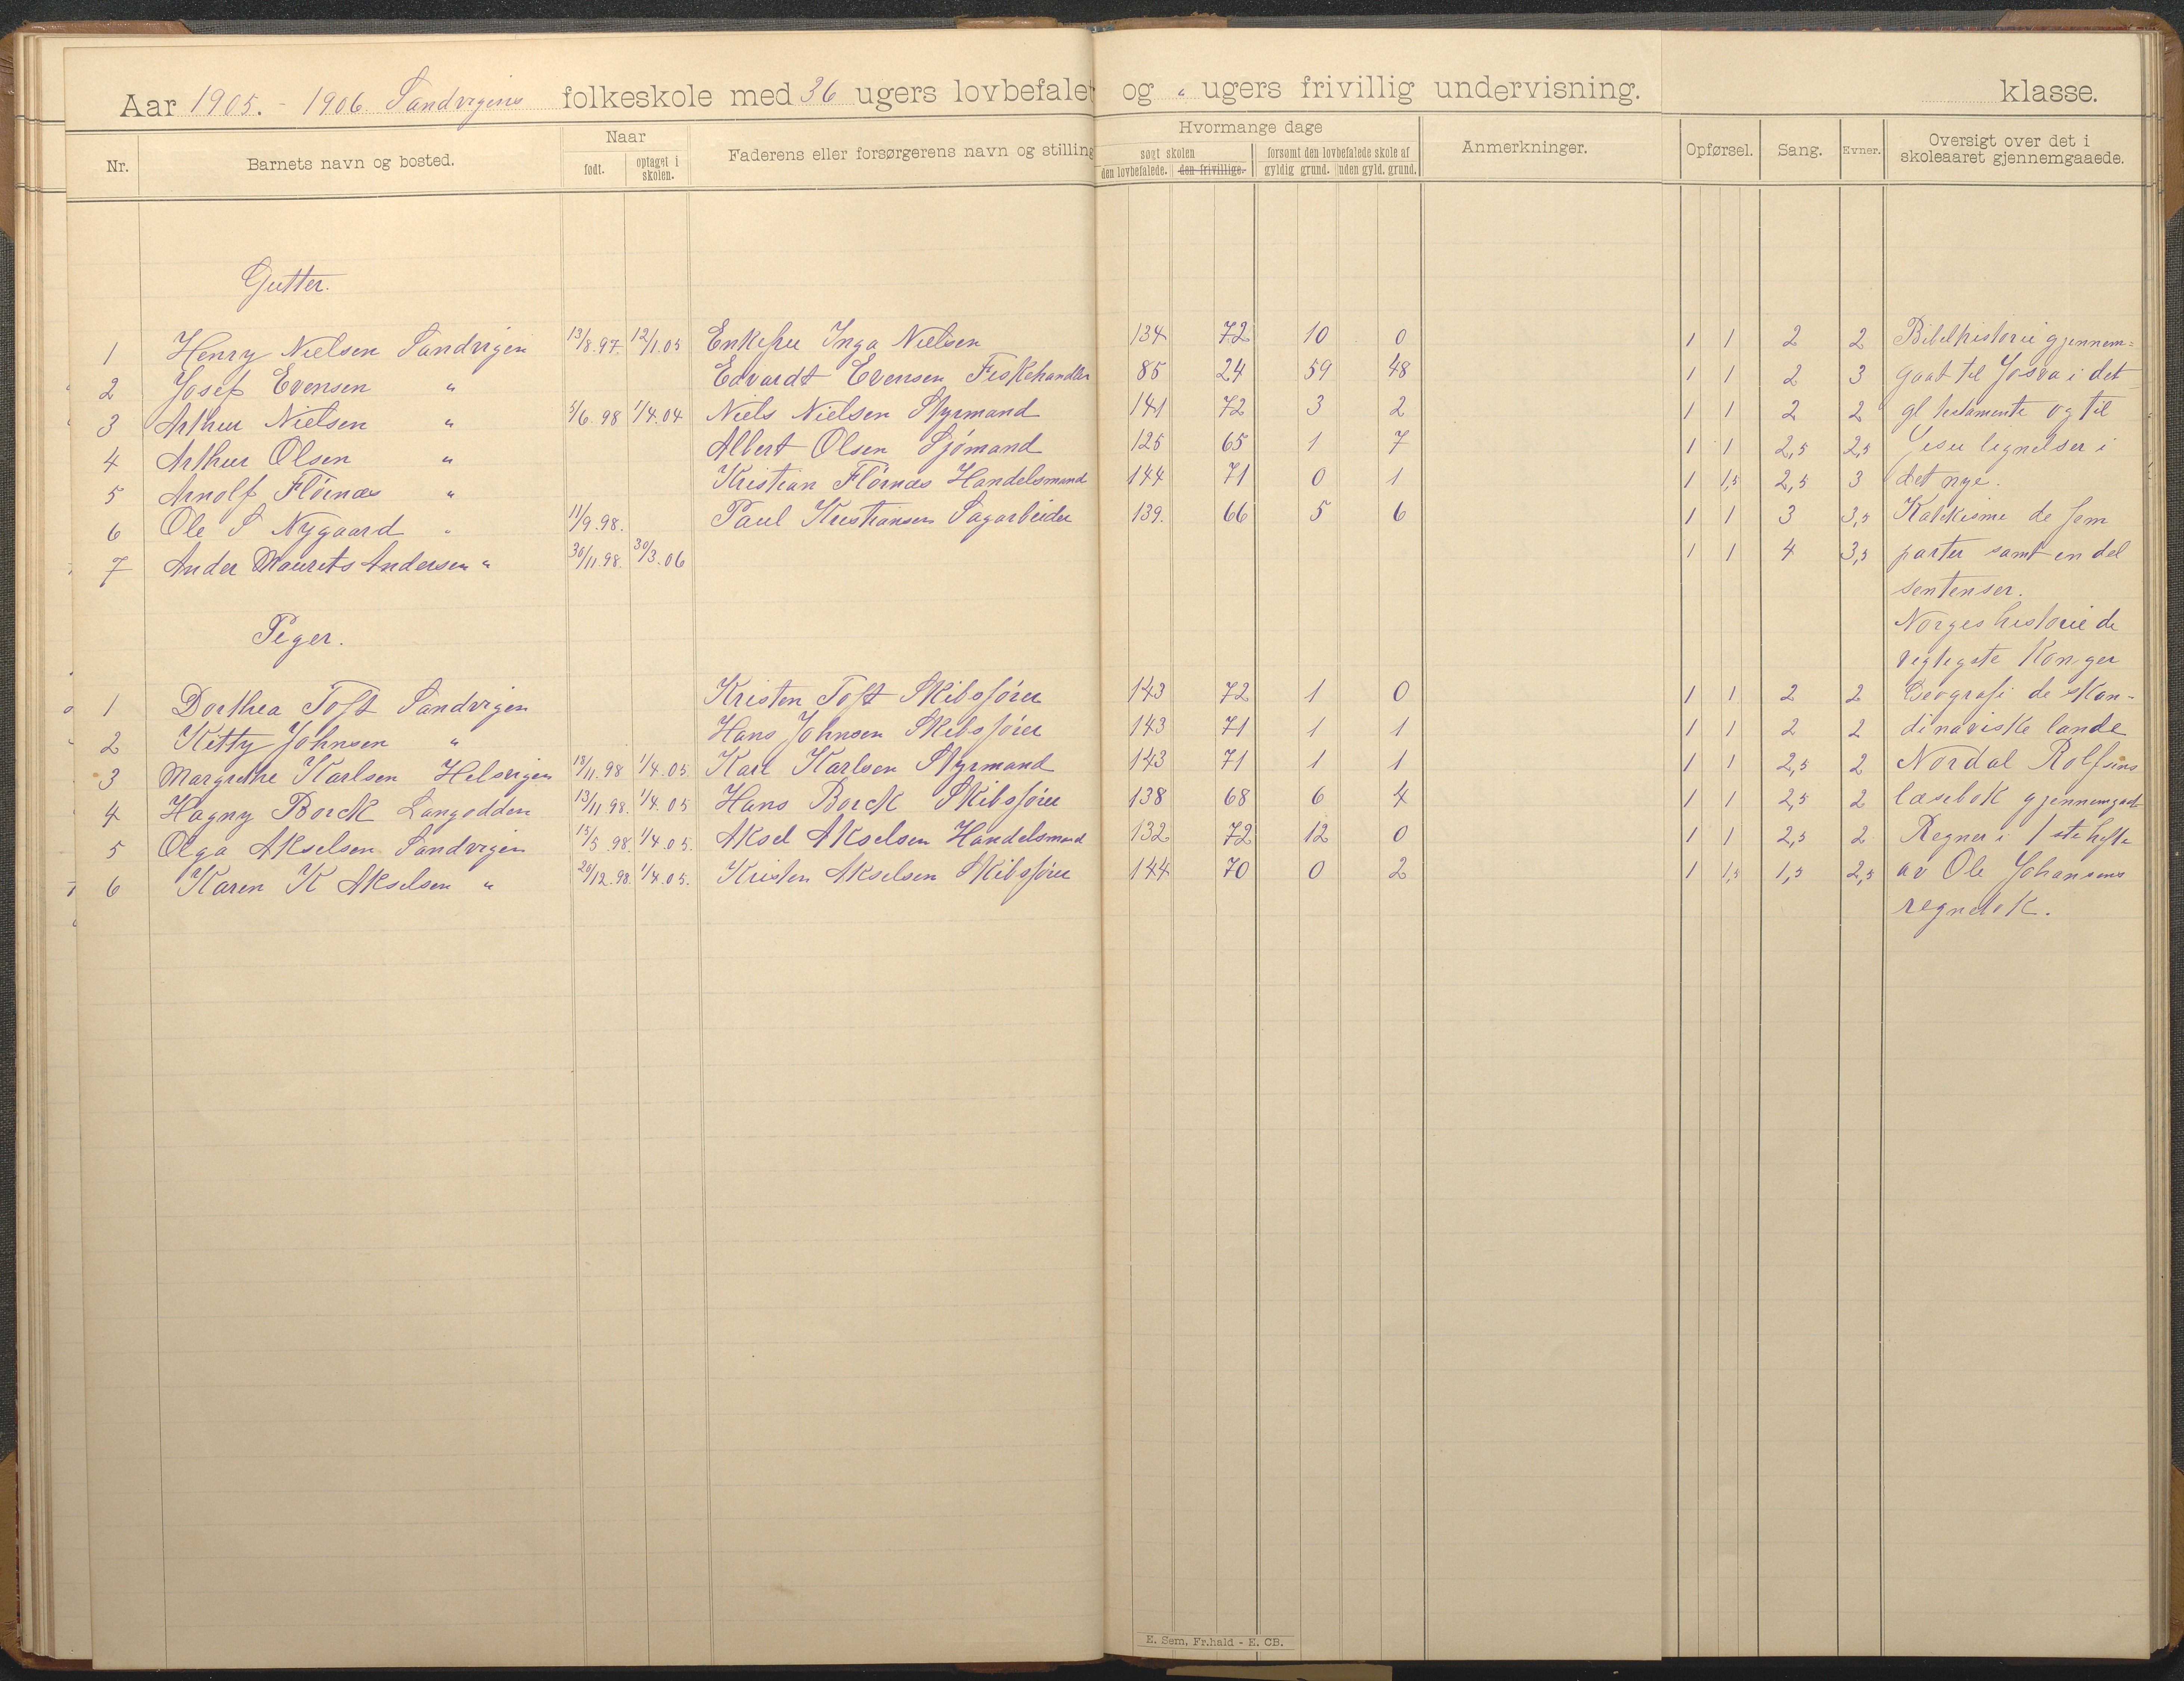 Aar 1905. - 1906 Sandvigens folkeskole med 36 ugers lovbefalet og " ugers frivillig undervisning. klasse.
Nr. Barnets navn og bosted. Naar født. optaget i skolen. Faderens eller forsørgerens navn og stilling Hvormange dage søgt skolen den lovbefalede. den frivillige. forsømt den lovbefalede skole af gyldig grund. uden gyld. grund. Anmerkninger. Opførsel. Sang. Evner. Oversigt over det i skoleaaret gjennemgaaede.
Gutter.
1 Henry Nielsen Sandvigen 13/8.97. 12/1.05 Enkefru Inga Nielsen 134 72 10 0 1 1 2 2 Bibelhistorie gjennem=
2 Josef Evensen " Edvardt Evensen Fiskehandler 85 24 59 48 1 1 2 3 gaat til Josva i det
3 Arthur Nielsen " 5/6.98 1/4.04 Niels Nielsen Styrmand 141 72 3 2 1 1 2 2 gl testamente og til
4 Arthur Olsen " Albert Olsen Sjømand 125 65 1 7 1 1 2,5 2,5 Jesu lignelser i
5 Arnolf Flørnæs " Kristian Flørnæs Handelsmand 144 71 0 1 1 1,5 2,5 3 det nye.
6 Ole S Nygaard " 11/9.98. Paul Kristiansen Sagarbeider 139. 66 5 6 1 1 3 3,5 Katekisme de fem
7 Ander Maurits Andersen " 30/11.98. 30/3.06 1 1 4 3,5 parter samt en del
sentenser.
Piger. Norges historie de
vigtigste Konger
1 Dorthea Toft Sandvigen Kristen Toft Skibsfører 143 72 1 0 1 1 2 2 Geografi de skan-
2 Kitty Johnsen " Hans Johnsen Skibsfører 143 71 1 1 1 1 2 2 dinaviske lande
3 Margrethe Karlsen Helsvigen 18/11.98 1/4.05 Karl Karlsen Styrmand 143 71 1 1 1 1 2,5 2 Nordal Rolfsens
4 Hagny Borck Langodden 13/11.98. 1/4.05 Hans Borck Skibsfører 138 68 6 4 1 1 2,5 2 læsebok gjennemgaat
5 Olga Akselsen Sandvigen 15/5.98 1/4.05. Aksel Akselsen Handelsmand 132 72 12 0 1 1 2,5 2 Regner i 1ste hefte
6 Karen K Akselsen " 20/12.98. 1/4.05. Kristen Akselsen Skibsfører 144 70 0 2 1 1,5 1,5 2,5 av Ole Johansens
regnebok.
E. Sem, Fr.hald - E. CB.